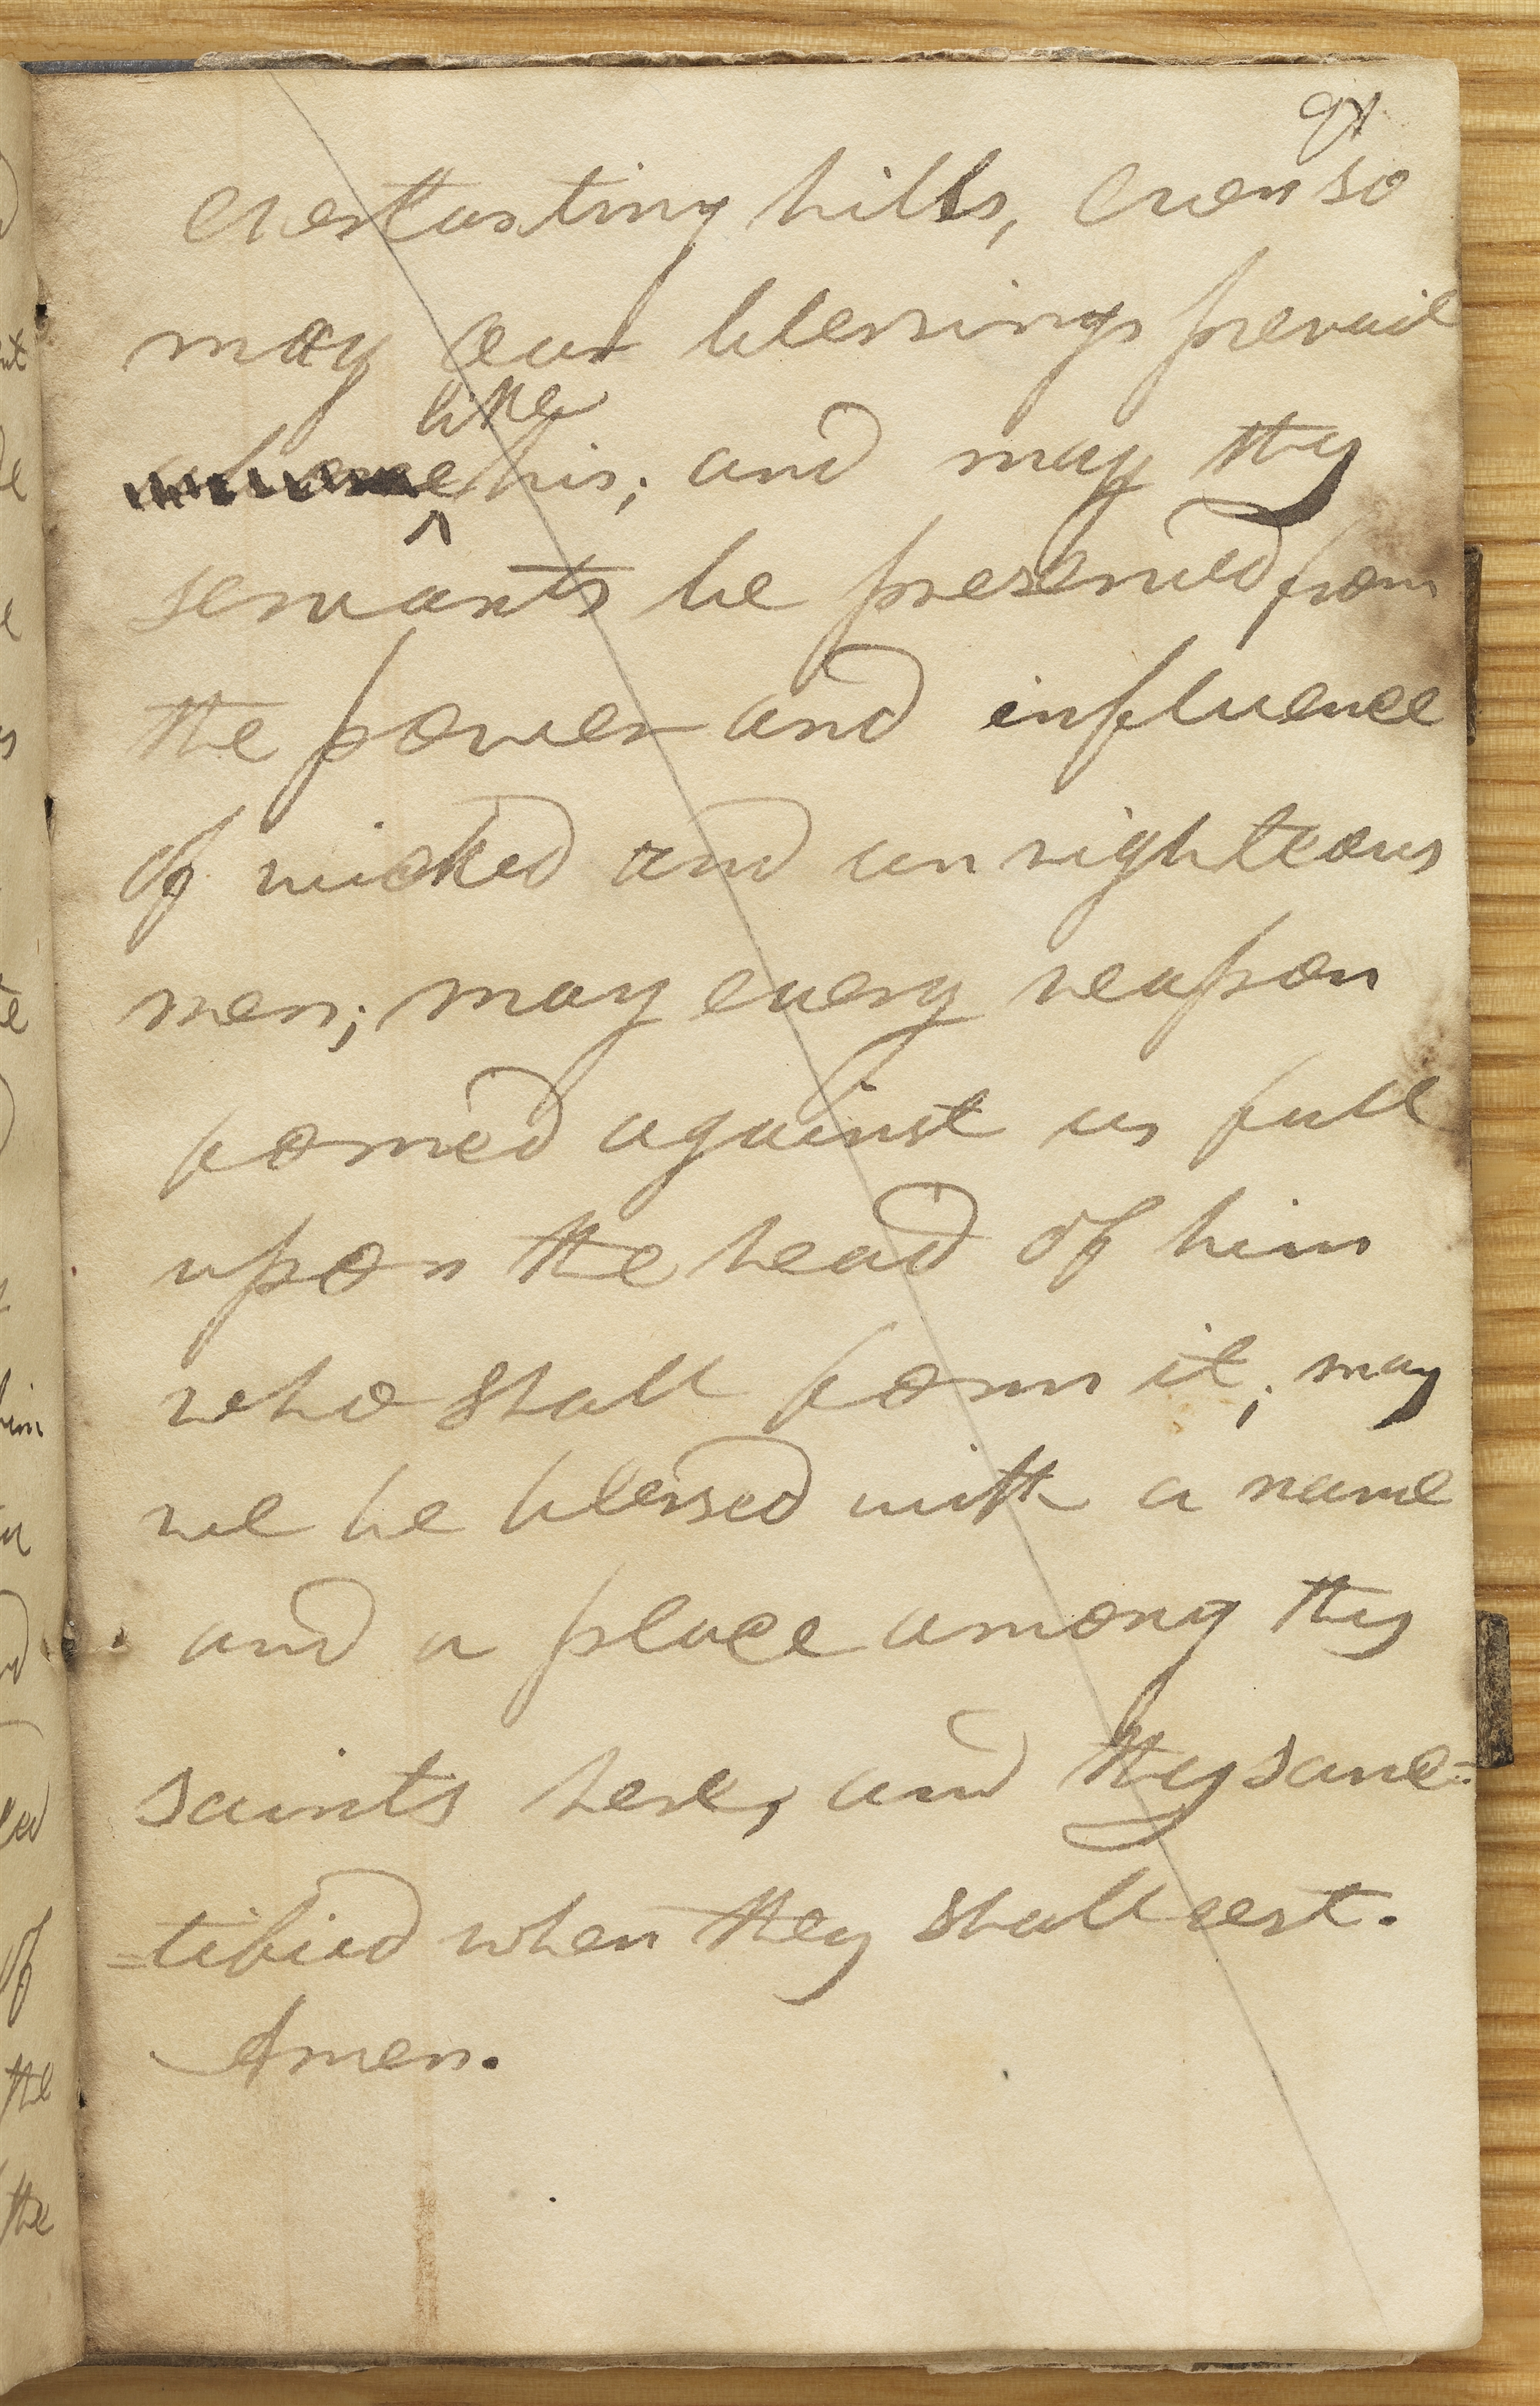 91
everlasting hills, even so
may our blessings prevail
like
above his; and may thy
servants be preserved from
the power and influence
of wicked and unrighteous
men; may every weapon
fomed against us fall
upon the head of him
who shall form it; may
we be blessed with a name
and a place among thy
saints here, and thy sanc=
=tified when they shall rest.
Amen.